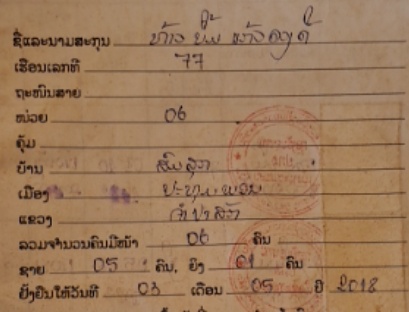 ຊື່ແລະນາມສະກຸນ ທ້າວ
ເຮືອນເລກທີ 77
ຖະໜົນສາຍ
ໜ່ວຍ 06
ຄຸ້ມ
ບ້ານ
ເມືອງ ປະທຸມພອນ
ແຂວງ ຈຳປາສັກ
ລວມຈຳນວນຄົນມີໜ້າ 06 ຄົນ
ຊາຍ 05 ຄົນ, ຍິງ 01 ຄົນ
ຢັ້ງຢືນໃຫ້ວັນທີ 03 ເດືອນ 05 ປີ 2018